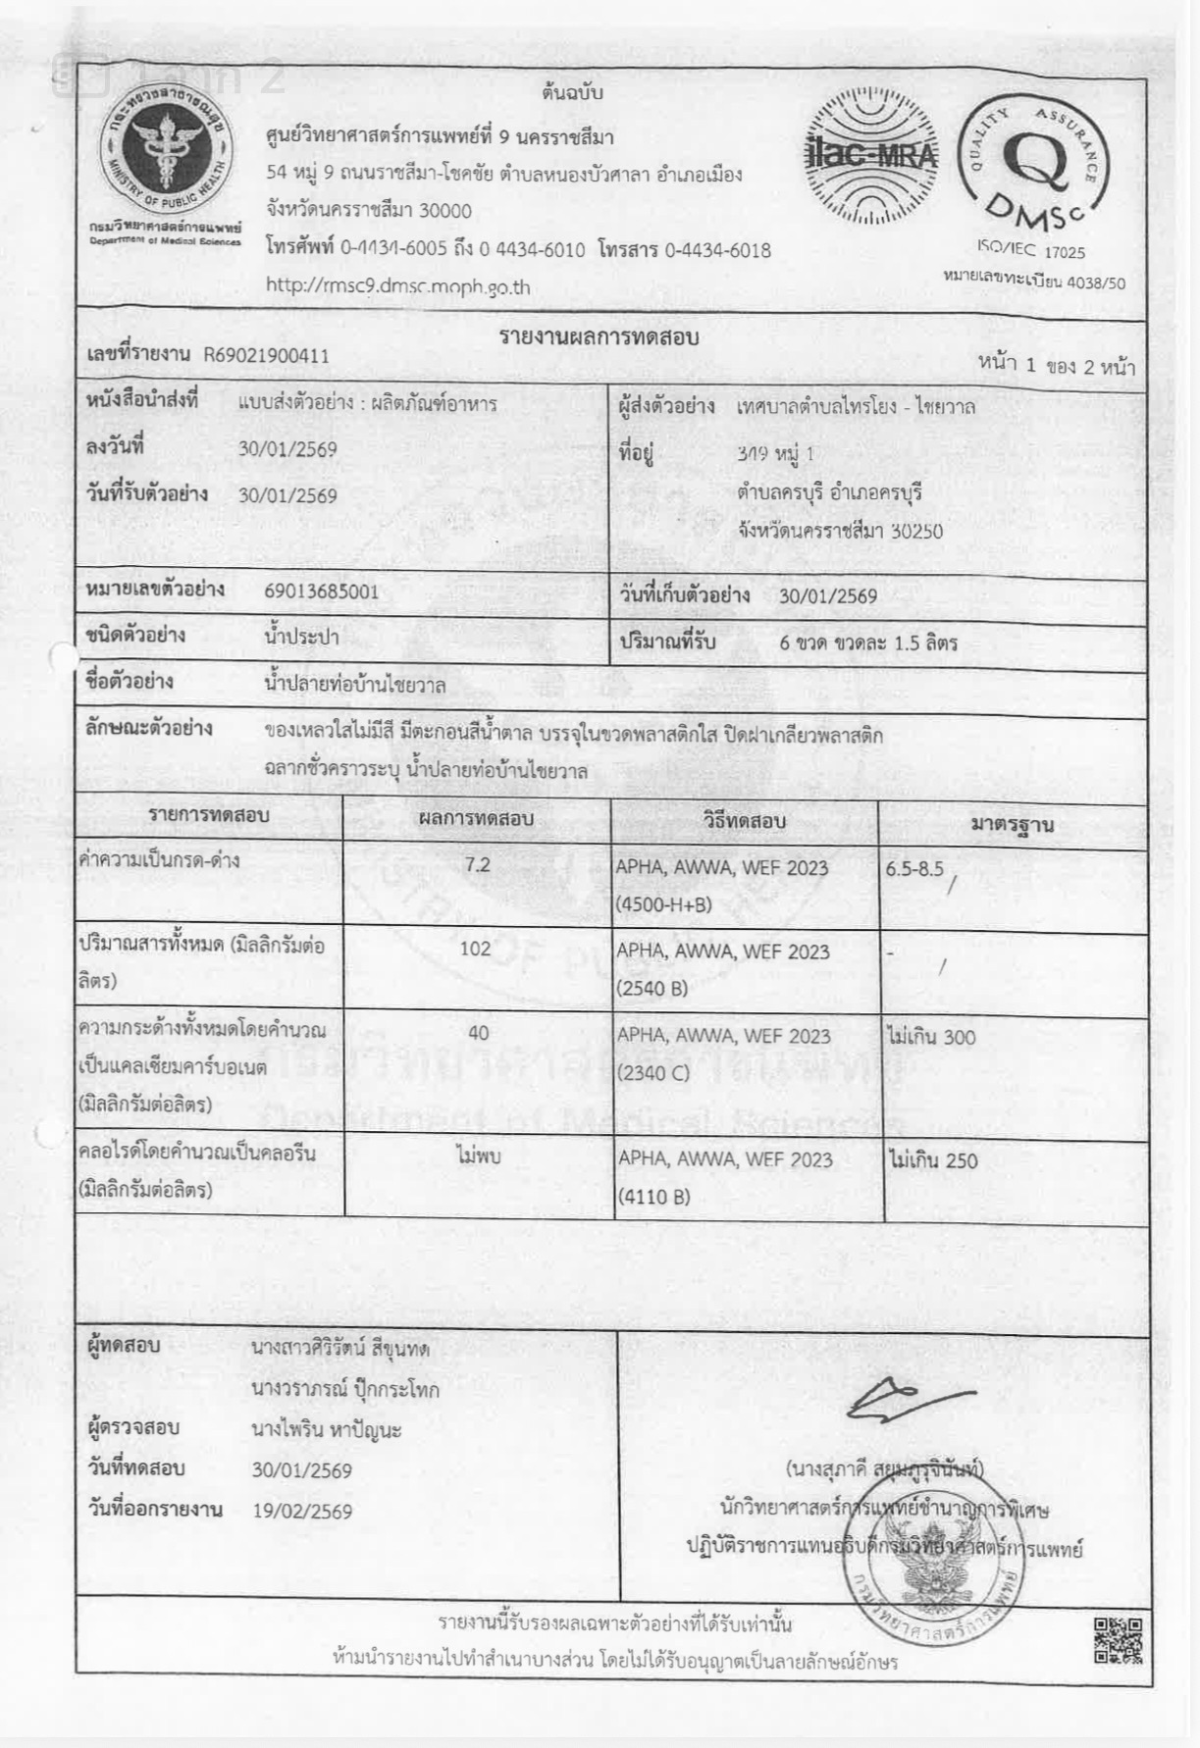 ต้นฉบับ
กระทรวงสาธารณสุข
MINISTRY OF PUBLIC HEALTH
กรมวิทยาศาสตร์การแพทย์
Department of Medical Sciences
ศูนย์วิทยาศาสตร์การแพทย์ที่ 9 นครราชสีมา
54 หมู่ 9 ถนนราชสีมา-โชคชัย ตำบลหนองบัวศาลา อำเภอเมือง
จังหวัดนครราชสีมา 30000
โทรศัพท์ 0-4434-6005 ถึง 0 4434-6010 โทรสาร 0-4434-6018
http://rmsc9.dmsc.moph.go.th
ilac-MRA
QUALITY ASSURANCE
Q
DMSc
ISO/IEC 17025
หมายเลขทะเบียน 4038/50
รายงานผลการทดสอบ
เลขที่รายงาน R69021900411
หน้า 1 ของ 2 หน้า
หนังสือนำส่งที่ แบบส่งตัวอย่าง : ผลิตภัณฑ์อาหาร
ลงวันที่ 30/01/2569
วันที่รับตัวอย่าง 30/01/2569
ผู้ส่งตัวอย่าง เทศบาลตำบลไทรโยง - ไชยวาล
ที่อยู่ 349 หมู่ 1
ตำบลครบุรี อำเภอครบุรี
จังหวัดนครราชสีมา 30250
หมายเลขตัวอย่าง 69013685001
วันที่เก็บตัวอย่าง 30/01/2569
ชนิดตัวอย่าง น้ำประปา
ปริมาณที่รับ 6 ขวด ขวดละ 1.5 ลิตร
ชื่อตัวอย่าง น้ำปลายท่อบ้านไชยวาล
ลักษณะตัวอย่าง ของเหลวใสไม่มีสี มีตะกอนสีน้ำตาล บรรจุในขวดพลาสติกใส ปิดฝาเกลียวพลาสติก
ฉลากชั่วคราวระบุ น้ำปลายท่อบ้านไชยวาล
รายการทดสอบ ผลการทดสอบ วิธีทดสอบ มาตรฐาน
ค่าความเป็นกรด-ด่าง 7.2 APHA, AWWA, WEF 2023 6.5-8.5 /
(4500-H+B)
ปริมาณสารทั้งหมด (มิลลิกรัมต่อ 102 APHA, AWWA, WEF 2023 - /
ลิตร) (2540 B)
ความกระด้างทั้งหมดโดยคำนวณ 40 APHA, AWWA, WEF 2023 ไม่เกิน 300
เป็นแคลเซียมคาร์บอเนต (2340 C)
(มิลลิกรัมต่อลิตร)
คลอไรด์โดยคำนวณเป็นคลอรีน ไม่พบ APHA, AWWA, WEF 2023 ไม่เกิน 250
(มิลลิกรัมต่อลิตร) (4110 B)
ผู้ทดสอบ นางสาวศิริรัตน์ สีขุนทด
นางวราภรณ์ ปุ๊กกระโทก
ผู้ตรวจสอบ นางไพริน หาปัญนะ
วันที่ทดสอบ 30/01/2569
วันที่ออกรายงาน 19/02/2569
(นางสุภาคี สยุมภูรุจินันท์)
นักวิทยาศาสตร์การแพทย์ชำนาญการพิเศษ
ปฏิบัติราชการแทนอธิบดีกรมวิทยาศาสตร์การแพทย์
กรมวิทยาศาสตร์การแพทย์
รายงานนี้รับรองผลเฉพาะตัวอย่างที่ได้รับเท่านั้น
ห้ามนำรายงานไปทำสำเนาบางส่วน โดยไม่ได้รับอนุญาตเป็นลายลักษณ์อักษร